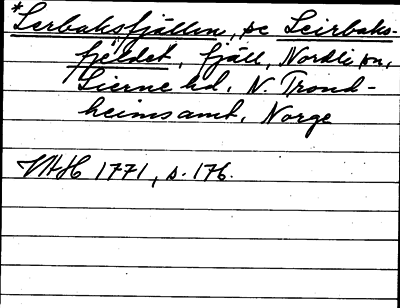 *Lerbaksfjällen, se Leirbaks-
fjeldet, fjäll, Nordli sn,
Lierne hd, N. Trond-
heims amt, Norge
VAH 1771, s. 176.